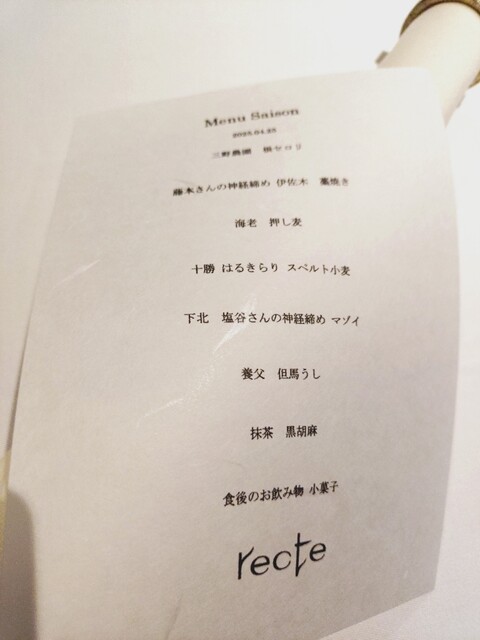 Menu Saison
2025.04.25
三野農園 根セロリ
藤本さんの神経締め 伊佐木 藁焼き
海老 押し麦
十勝 はるきらり スペルト小麦
下北 塩谷さんの神経締め マゾイ
養父 但馬うし
抹茶 黒胡麻
食後のお飲み物 小菓子
recte